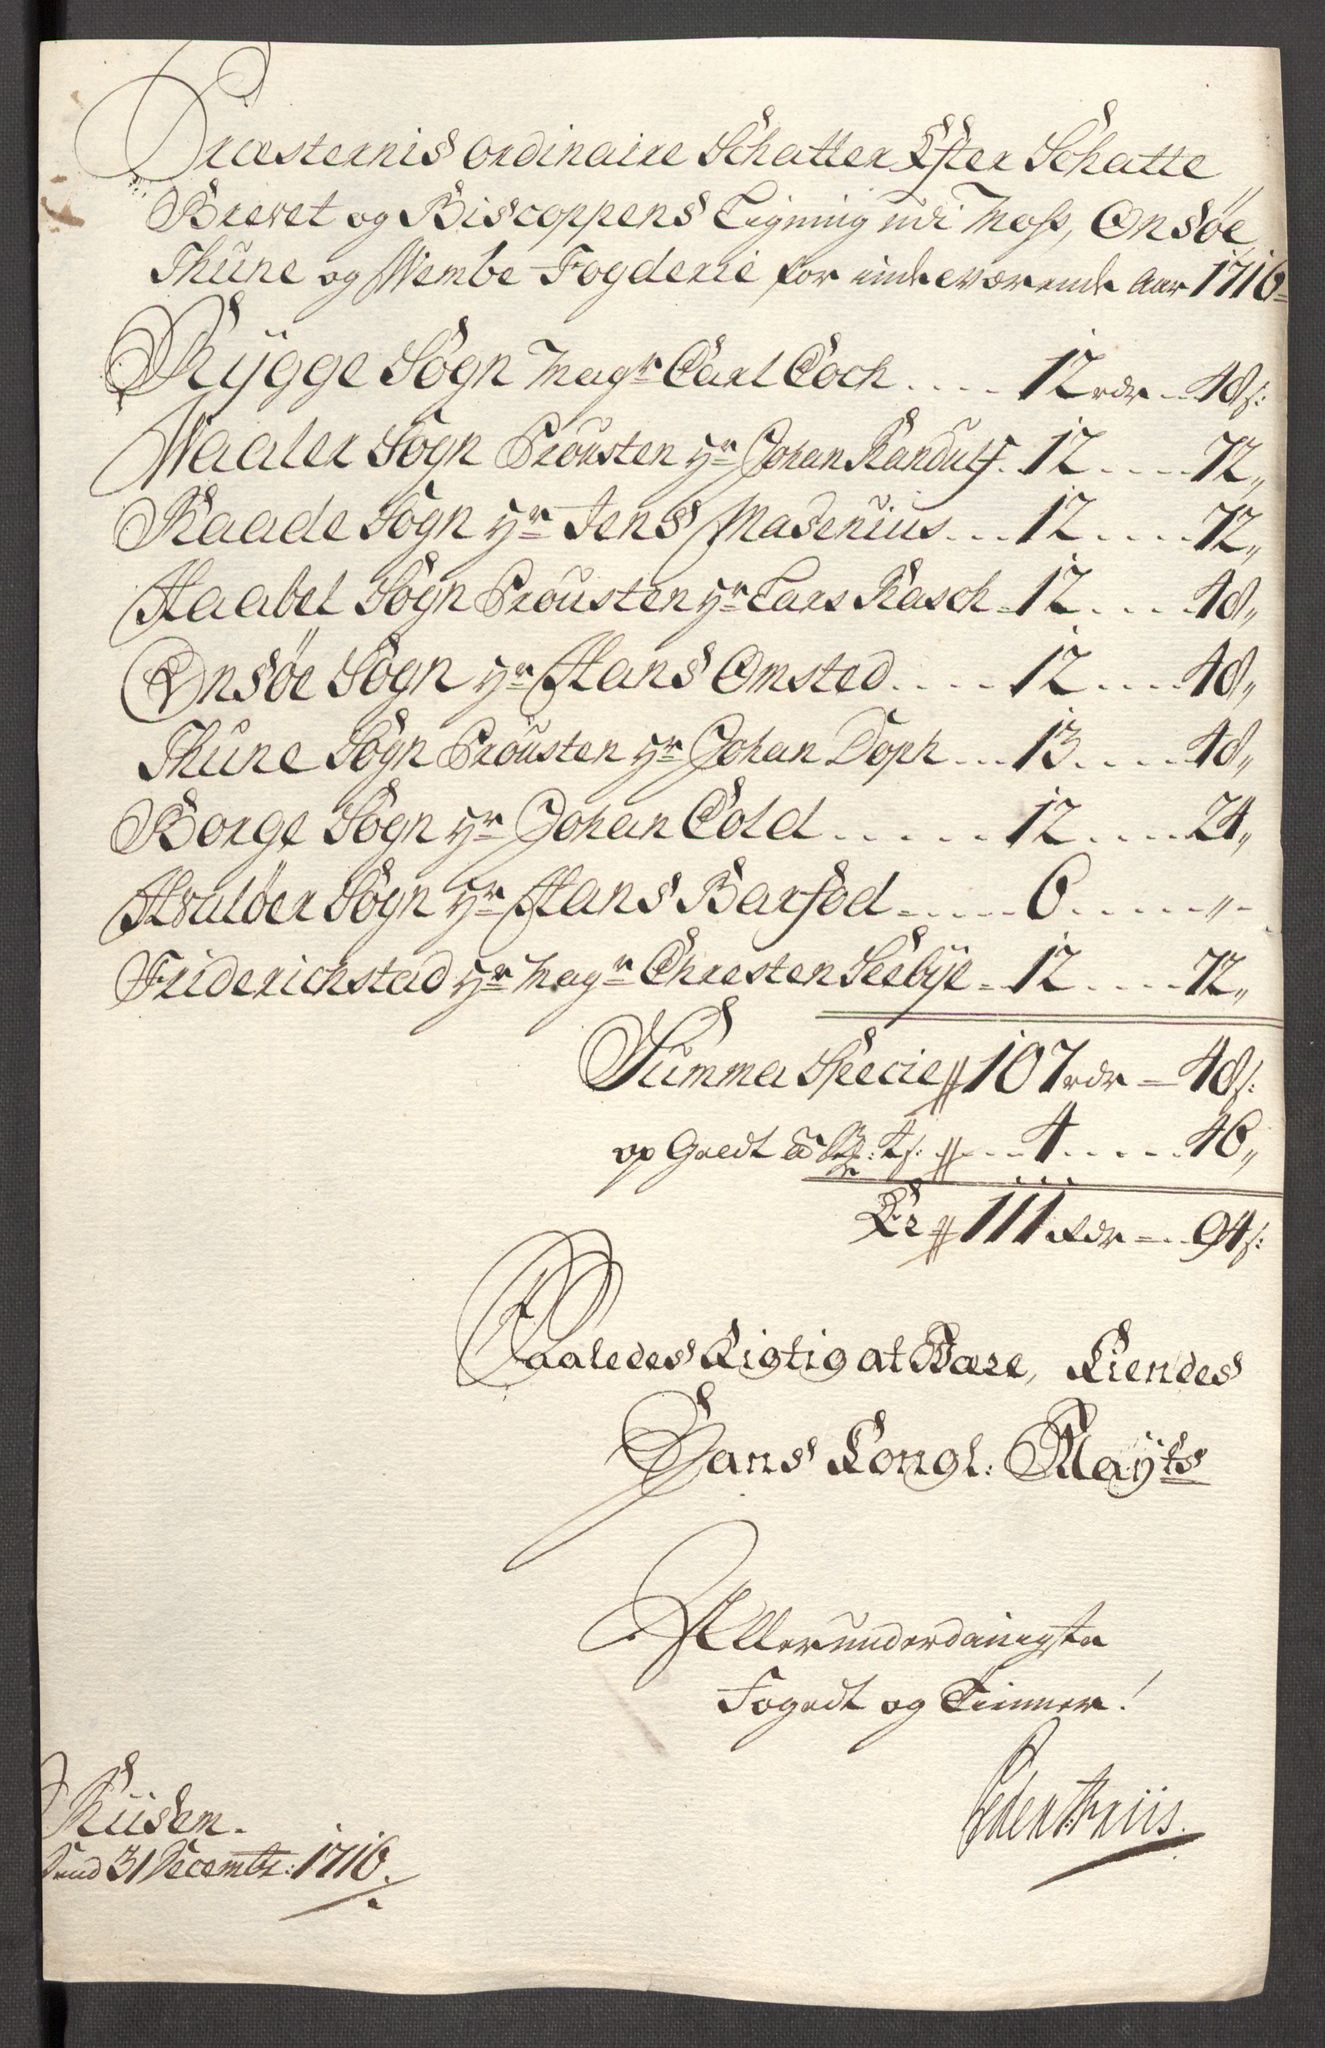 Præsternis ordinaire Schatter Efter Schatte
Brevet og Biscoppens Ligning udi Moss, Onsøe,
Thune og Wembe Fogderie for indeværende Aar 1716
Rygge Sogn Magr Carl Coch .... 12 rdr .. 48 s:
Waaler Sogn Prousten Hr Johan Randulf . 12 .... 72,,
Raade Sogn Hr Jens Masenius ... 12 .... 72,,
Haabel Sogn Prousten Hr Lars Rasch - 12 .... 48,,
Onsøe Sogn Hr Hans Omsted ..... 12 .... 48,,
Thune Sogn Prousten Hr Johan Doph ... 13 .... 48,,
Borge Sogn Hr Johan Cold ...... 12 .... 24,,
Hvaløer Sogn Hr Hans Barfod ...... 6 ...... ,, -
Friderichstad Hr Magr Chresten Seebye - 12 .... 72,,
Summa Specie 107 rdr - 48 s:
op Geldt à 4 s: ... 4 ..... 46,,
Er 111 Rdr - .. 94 s:
Saaledes Rigtig at Være, Kiendes
Hans Kongl: Mayts
Allerunderdanigste
Fogedt og Tienner!
Peder Friis.
Riisem.
dend 31 Decembr: 1716.